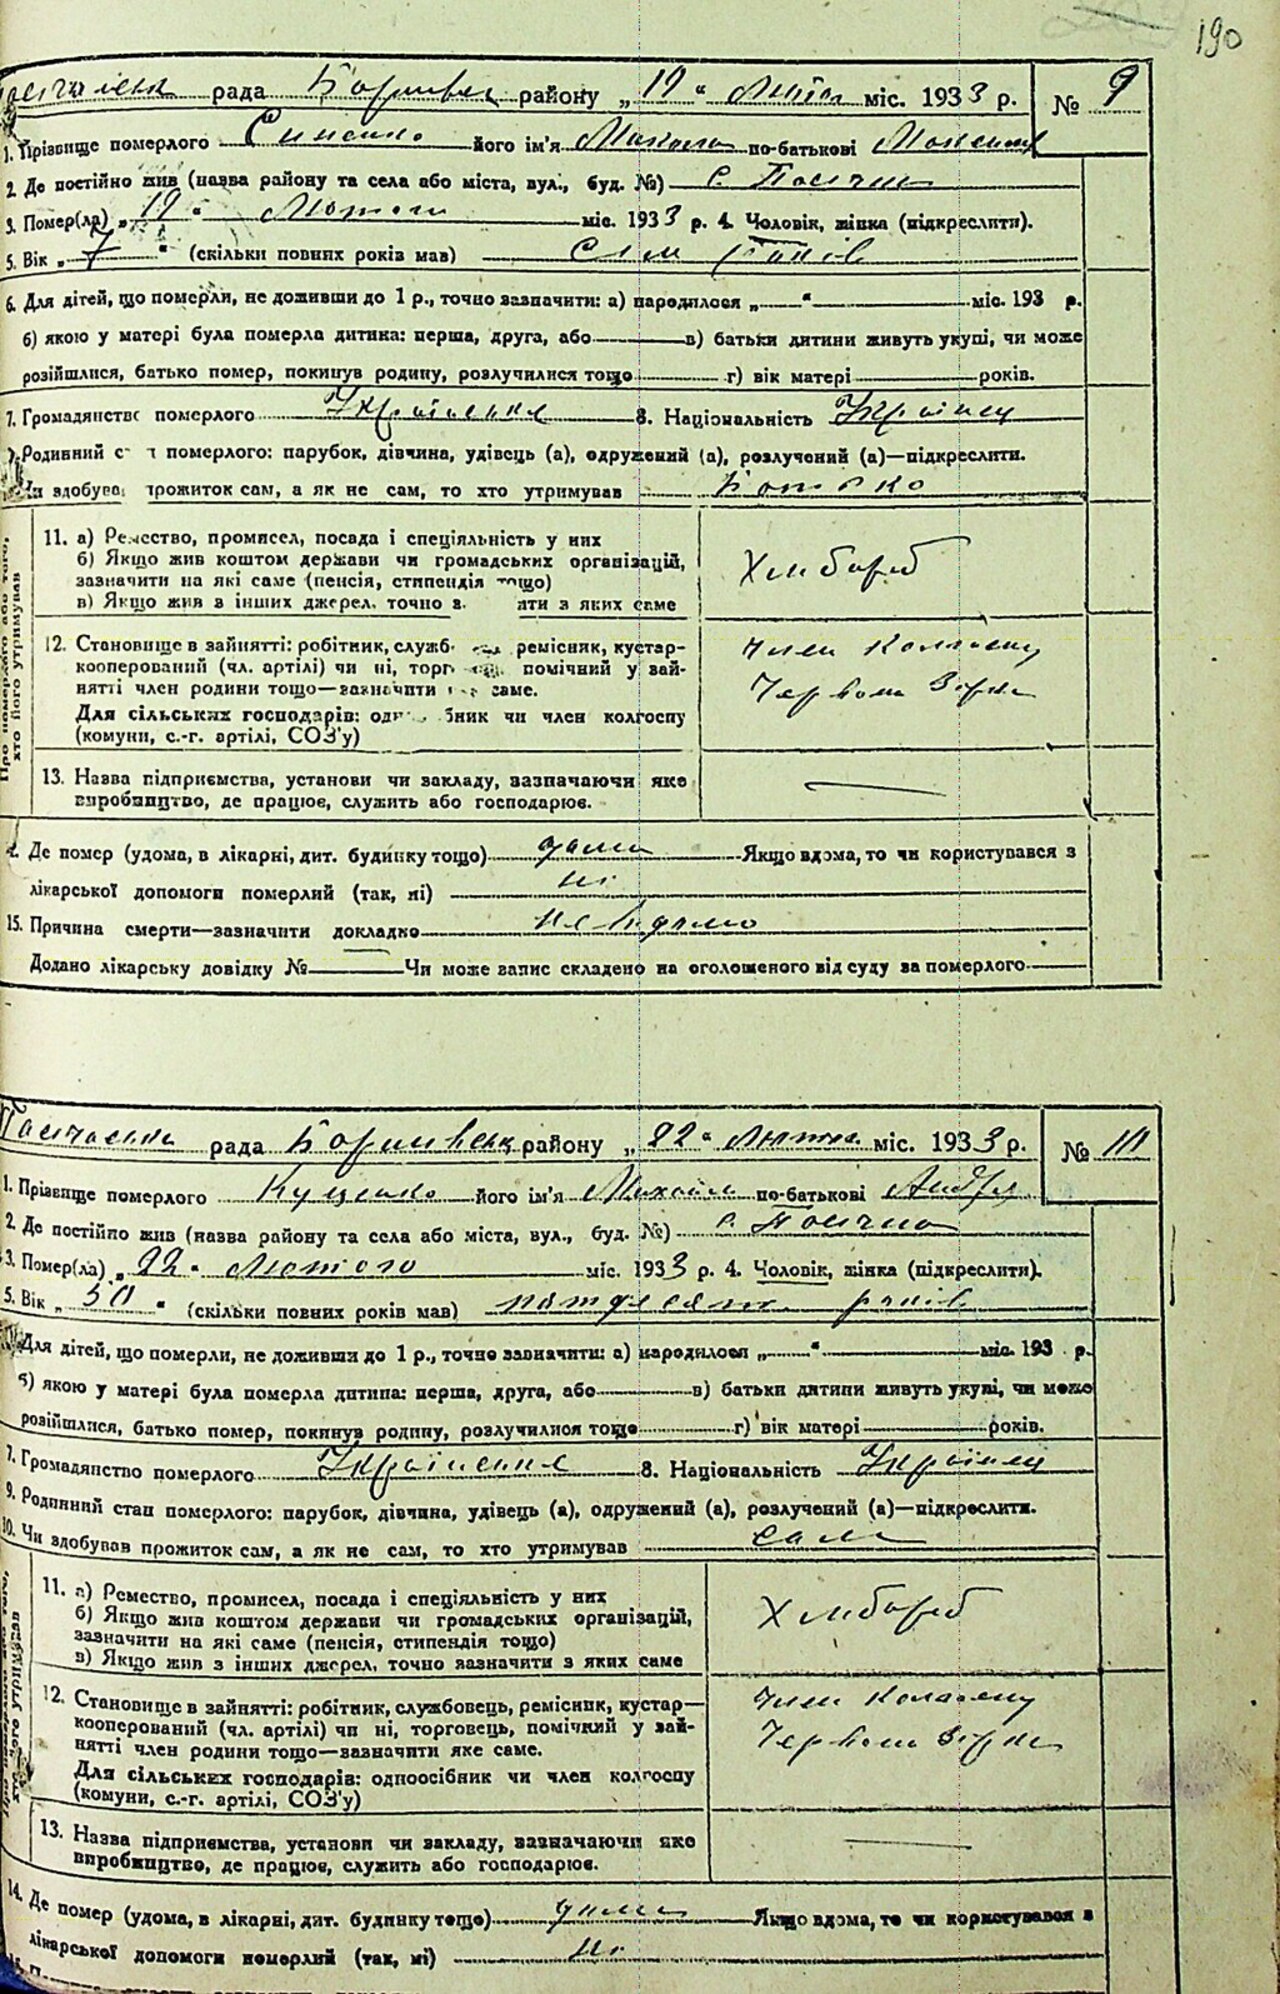 190
рада район у „19“ Лютого міс. 1933 р. № 9
1. Прізвище померлого його ім'я Микола по-батькові
2. Де постійно жив (назва району та села або міста, вул., буд. №) с.
3. Помер(ла) „19“ Лютого міс. 1933 р. 4. Чоловік, жінка (підкреслити).
5. Вік „7“ (скільки повних років мав) Сім років
6. Для дітей, що померли, не доживши до 1 р., точно зазначити: а) народилося „ “ міс. 193 р.
б) якою у матері була померла дитина: перша, друга, або в) батьки дитини живуть укупі, чи може
розійшлися, батько помер, покинув родину, розлучилися тощо г) вік матері років.
7. Громадянство померлого Українське 8. Національність Українец
Родинний померлого: парубок, дівчина, удівець (а), одружений (а), розлучений (а)—підкреслити.
здобував прожиток сам, а як не сам, то хто утримував Батько
Про померлого або того, хто його утримував
11. а) Ремество, промисел, посада і спеціяльність у них
б) Якщо жив коштом держави чи громадських організацій,
зазначити на які саме (пенсія, стипендія тощо)
в) Якщо жив з інших джерел, точно з яких саме
Хлібороб
12. Становище в зайнятті: робітник, служб ремісник, кустар-
кооперований (чл. артілі) чи ні, торг помічний у зай-
нятті член родини тощо—зазначити саме.
Для сільських господарів: од бник чи член колгоспу
(комуни, с.-г. артілі, СОЗ'у)
Член Колгоспу
Червона Зірка
13. Назва підприємства, установи чи закладу, зазначаючи яке
виробництво, де працює, служить або господарює.
Де помер (удома, в лікарні, дит. будинку тощо) дома Якщо вдома, то чи користувався з
лікарської допомоги померлий (так, ні) ні
15. Причина смерти—зазначити докладно не відомо
Додано лікарську довідку № Чи може запис складено на оголошеного від суду за померлого
рада район у „22“ Лютого міс. 1933 р. №
1. Прізвище померлого Куценко його ім'я Михайло по-батькові
2. Де постійно жив (назва району та села або міста, вул., буд. №) с.
3. Помер(ла) „22“ Лютого міс. 1933 р. 4. Чоловік, жінка (підкреслити).
5. Вік „50“ (скільки повних років мав) пятдесят років
Для дітей, що померли, не доживши до 1 р., точно зазначити: а) народилося „ “ міс. 193 р.
б) якою у матері була померла дитина: перша, друга, або в) батьки дитини живуть укупі, чи може
розійшлися, батько помер, покинув родину, розлучилися тоще г) вік матері років.
7. Громадянство померлого Українське 8. Національність Українец
9. Родинний стан померлого: парубок, дівчина, удівець (а), одружений (а), розлучений (а)—підкреслити.
10. Чи здобував прожиток сам, а як не сам, то хто утримував сам
11. а) Ремество, промисел, посада і спеціяльність у них
б) Якщо жив коштом держави чи громадських організацій,
зазначити на які саме (пенсія, стипендія тощо)
в) Якщо жив з інших джерел, точно зазначити з яких саме
Хлібороб
12. Становище в зайнятті: робітник, службовець, ремісник, кустар—
кооперований (чл. артілі) чи ні, торговець, помічний у зай-
нятті член родини тощо—зазначити яке саме.
Для сільських господарів: одноосібник чи член колгоспу
(комуни, с.-г. артілі, СОЗ'у)
Член Колгоспу
Червона Зірка
13. Назва підприємства, установи чи закладу, зазначаючи яке
виробництво, де працює, служить або господарює.
14. Де помер (удома, в лікарні, дит. будинку тощо) дома Якщо вдома, то чи користувався з
лікарської допомоги померлий (так, ні) ні